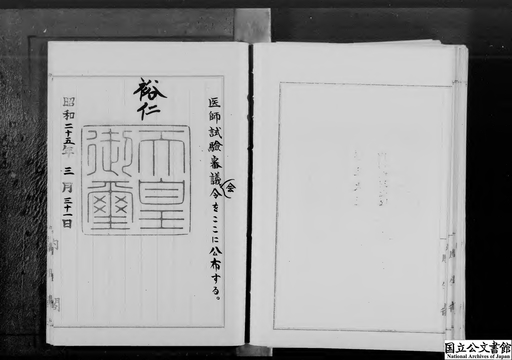 医師試驗審議会令をここに公布する。
裕仁
天皇
御璽
昭和二十五年三月三十一日
国立公文書館
National Archives of Japan